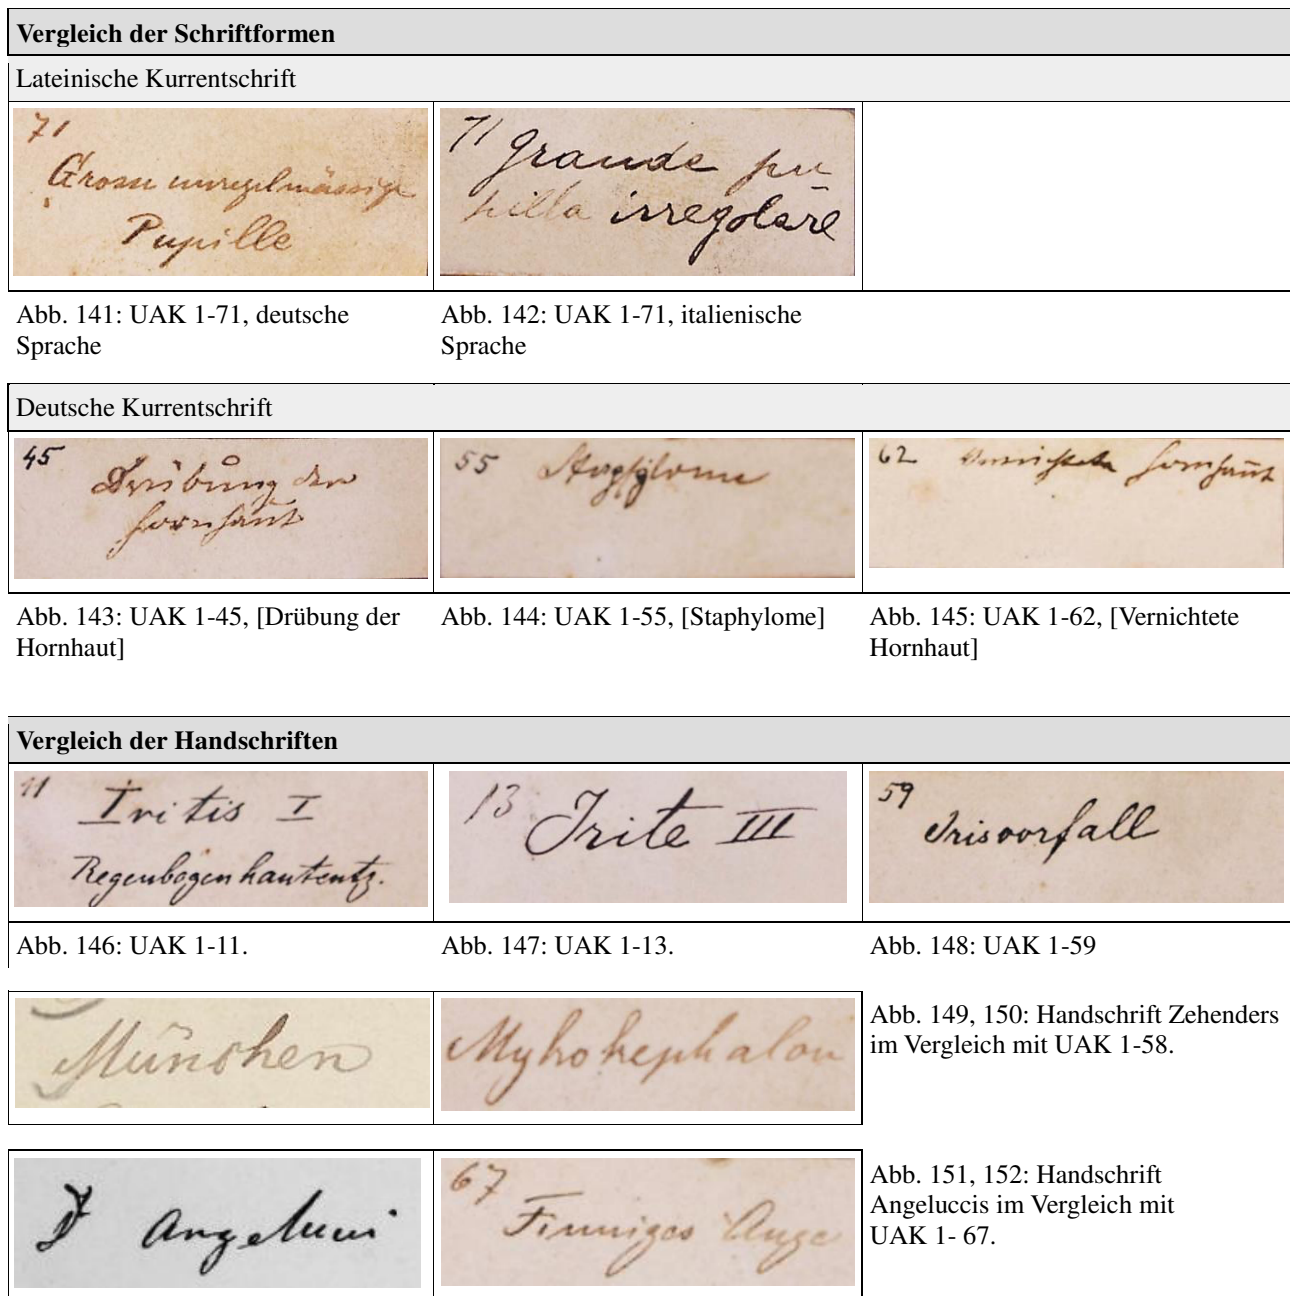 Vergleich der Schriftformen
Lateinische Kurrentschrift
71
Grosse unregelmässige
Pupille
71 grande pu
pilla irregolare
Abb. 141: UAK 1-71, deutsche
Sprache
Abb. 142: UAK 1-71, italienische
Sprache
Deutsche Kurrentschrift
45
Drübung der
Hornhaut
55 Staphylome
62 Vernichtete Hornhaut
Abb. 143: UAK 1-45, [Drübung der
Hornhaut]
Abb. 144: UAK 1-55, [Staphylome]
Abb. 145: UAK 1-62, [Vernichtete
Hornhaut]
Vergleich der Handschriften
11 Iritis I
Regenbogenhautentz.
13 Irite III
59
Irisvorfall
Abb. 146: UAK 1-11.
Abb. 147: UAK 1-13.
Abb. 148: UAK 1-59
München
Myhokephalon
Abb. 149, 150: Handschrift Zehenders
im Vergleich mit UAK 1-58.
Angelucci
67
Finniges Auge
Abb. 151, 152: Handschrift
Angeluccis im Vergleich mit
UAK 1- 67.